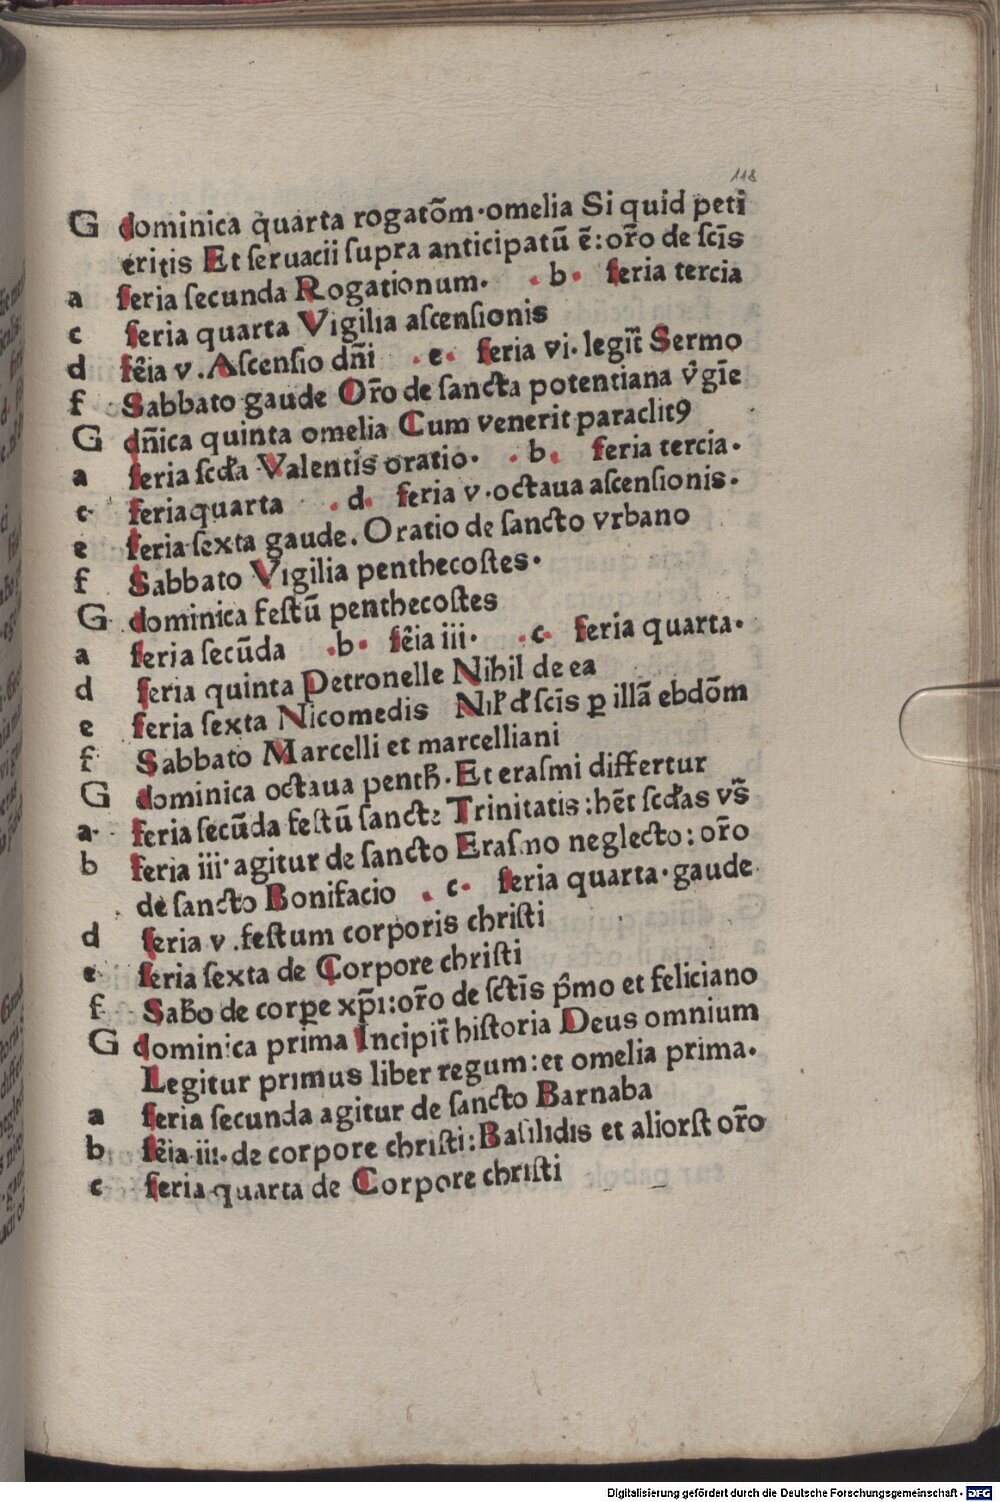 118
G dominica quarta rogatōm·omelia Si quid peti
eritis Et ſeruacii ſupra anticipatū ē:or̃o de ſcīs
a feria ſecunda Rogationum· ·b· feria tercia
c feria quarta Vigilia aſcenſionis
d fēia v.Aſcenſio dn̄i ·e· feria vi·legit̃ Sermo
f Sabbato gaude Or̃o de ſancta potentiana v̓gīe
G dn̄ica quinta omelia Cum venerit paraclitꝯ
a feria ſcd̓a Valentis oratio· ·b· feria tercia·
c· feria quarta ·d· feria v·octaua aſcenſionis·
e feria ſexta gaude. Oratio de ſancto vrbano
f Sabbato Vigilia penthecoſtes·
G dominica feſtū penthecoſtes
a feria ſecūda ·b· fēia iii· ·c· feria quarta·
d feria quinta Petronelle Nihil de ea
e feria ſexta Nicomedis Nil̓ d̓ ſcīs ꝑ illā ebdōm
f Sabbato Marcelli et marcelliani
G dominica octaua penth̄·Et eraſmi differtur
a· feria ſecūda feſtū ſancte Trinitatis:hēt ſcd̓as vs̃
b feria iii·agitur de ſancto Eraſmo neglecto:or̃o
de ſancto Bonifacio · c· feria quarta·gaude
d feria v.feſtum corporis chriſti
e feria ſexta de Corpore chriſti
f Sabb̄o de corꝑe xp̄i:or̃o de ſctīs p̄mo et feliciano
G dominica prima Incipit̃ hiſtoria Deus omnium
Legitur primus liber regum:et omelia prima·
a feria ſecunda agitur de ſancto Barnaba
b fēia iii·de corpore chriſti:Baſilidis et aliorſt or̃o
c feria quarta de Corpore chriſti
Digitalisierung gefördert durch die Deutsche Forschungsgemeinschaft - DFG